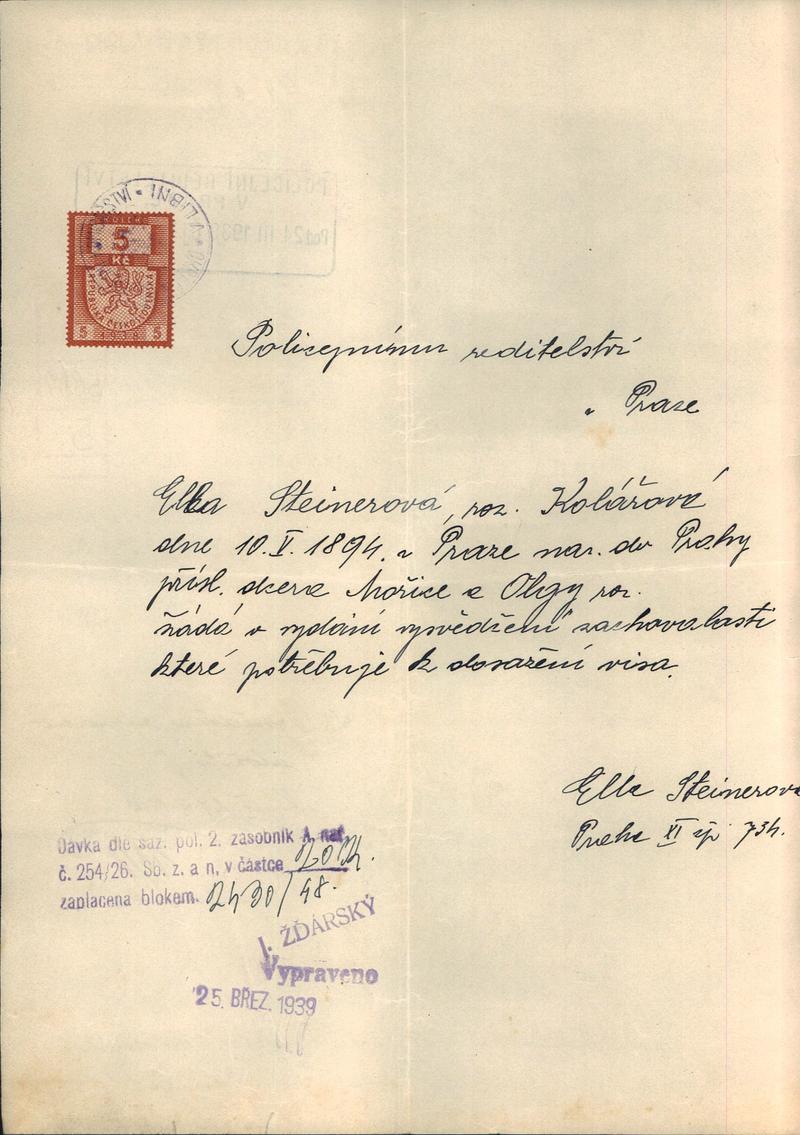 KOLEK
5
Kč
REPUBLIKA ČESKOSLOVENSKÁ
5 5
Policejnímu reditelství
v Praze
Ella Steinerová, roz. Kolářová
dne 10. V. 1894. v Praze nar. do Prahy
přísl. dcera Mořice a Olgy roz.
žádá o vydání vysvědžení zachovalasti
které potřebuje k dosažení visa.
Ella Steinerova
Praha XI čp 734.
Dávka dle saz. pol. 2. zasobnik A. nař.
č. 254/26. Sb. z. a n. v částce 20 K.
zaplacena blokem. 2430/48.
J. ŽĎÁRSKÝ
Vypraveno
25. BŘEZ. 1939